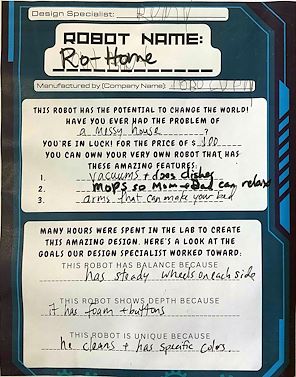 Design Specialist:
ROBOT NAME:
Ro-Home
Manufactured by (Company Name):
THIS ROBOT HAS THE POTENTIAL TO CHANGE THE WORLD!
HAVE YOU EVER HAD THE PROBLEM OF
a messy house?
YOU'RE IN LUCK! FOR THE PRICE OF $ 100
YOU CAN OWN YOUR VERY OWN ROBOT THAT HAS
THESE AMAZING FEATURES
1. vacuums + does dishes
2. mops so Mom + Dad can relax
3. arms that can make your bed
MANY HOURS WERE SPENT IN THE LAB TO CREATE
THIS AMAZING DESIGN. HERE'S A LOOK AT THE
GOALS OUR DESIGN SPECIALIST WORKED TOWARD:
THIS ROBOT HAS BALANCE BECAUSE
has steady wheels on each side
THIS ROBOT SHOWS DEPTH BECAUSE
it has foam + buttons
THIS ROBOT IS UNIQUE BECAUSE
he cleans + has specific colors.